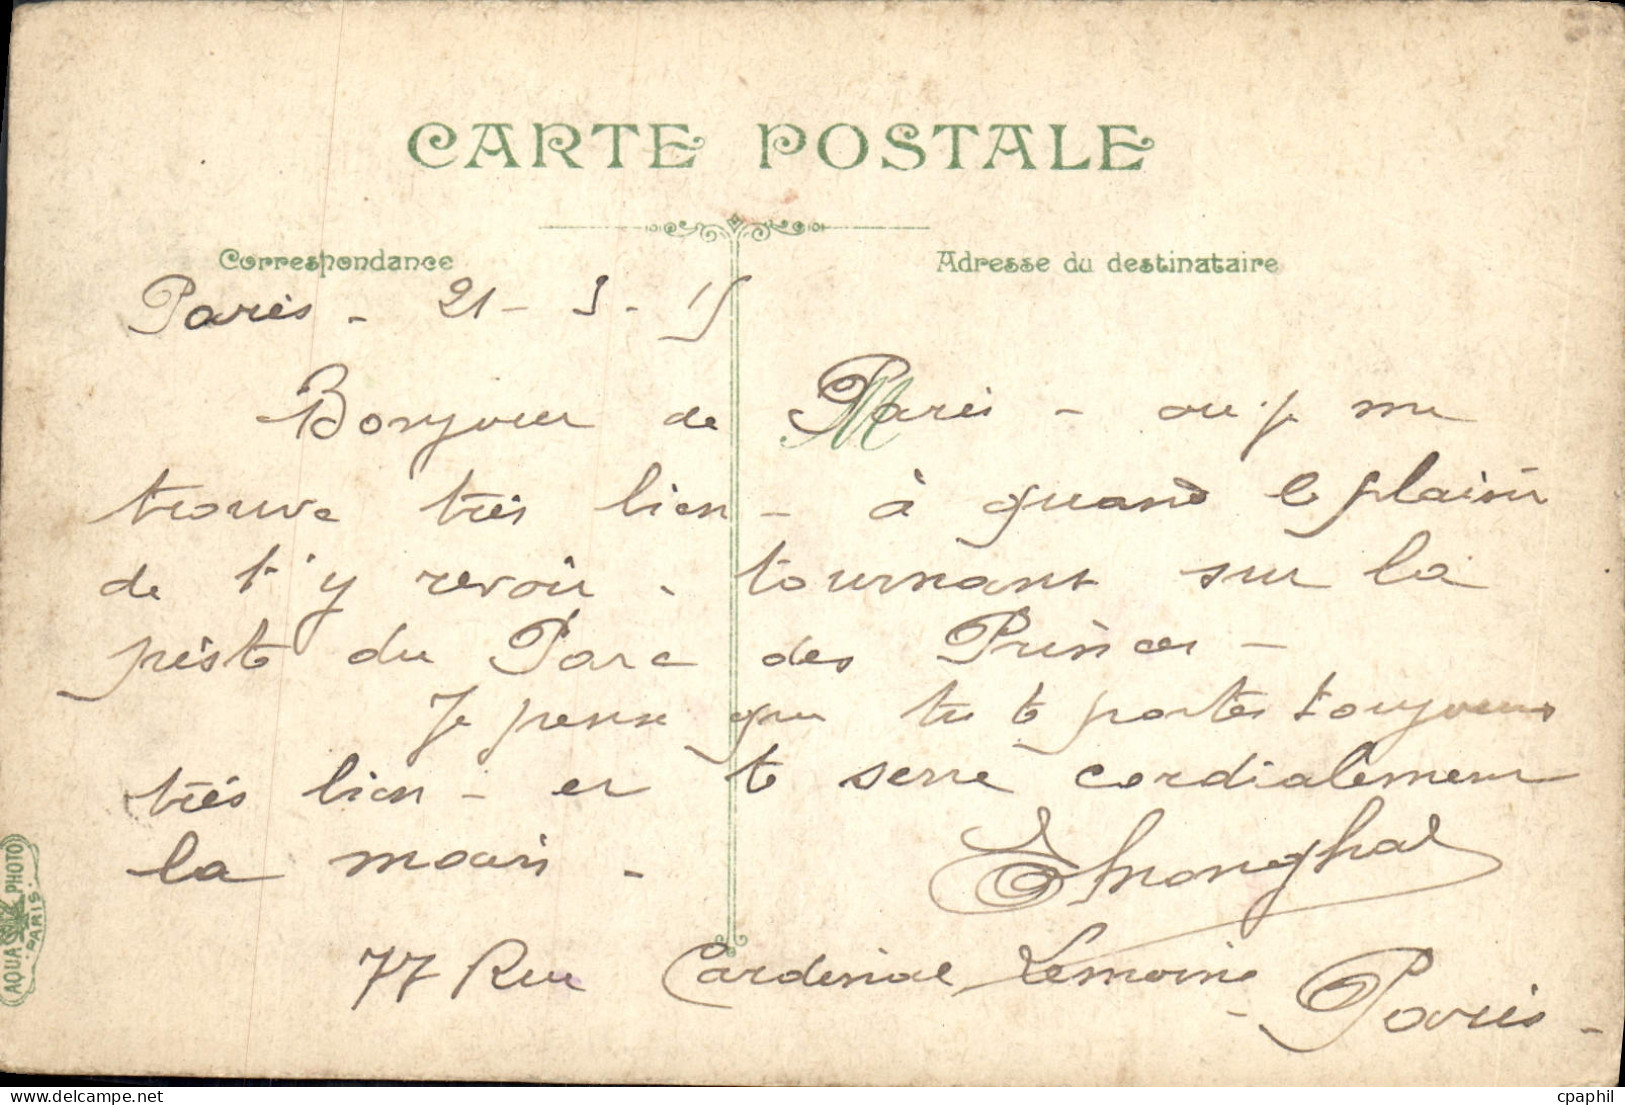 CARTE POSTALE
Correspondance
Adresse du destinataire
Paris - 21 - 3 - 15
Bonjour de Paris - ou je me
trouve très bien - à quand le plaisir
de t'y revoir - tournant sur la
piste du Parc des Princes -
Je pense que tu te portes toujours
très bien - et te serre cordialement
la main -
77 Rue Cardinal Lemoine -
Paris -
M
AQUA PHOTO
PARIS
delcampe.net
cpaphil